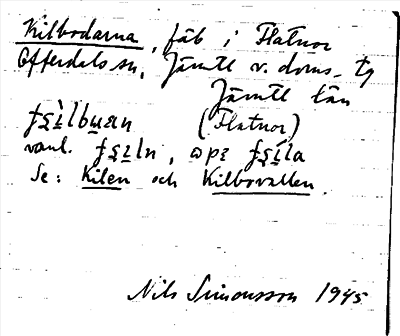 Kilbodarna, fäb i Flatnor
Offerdals sn, Jämtl v. doms. tg
Jämtl län
(Flatnor)
vanl.
Se: Kilen och Kilbovallen.
Nils Simonsson 1945